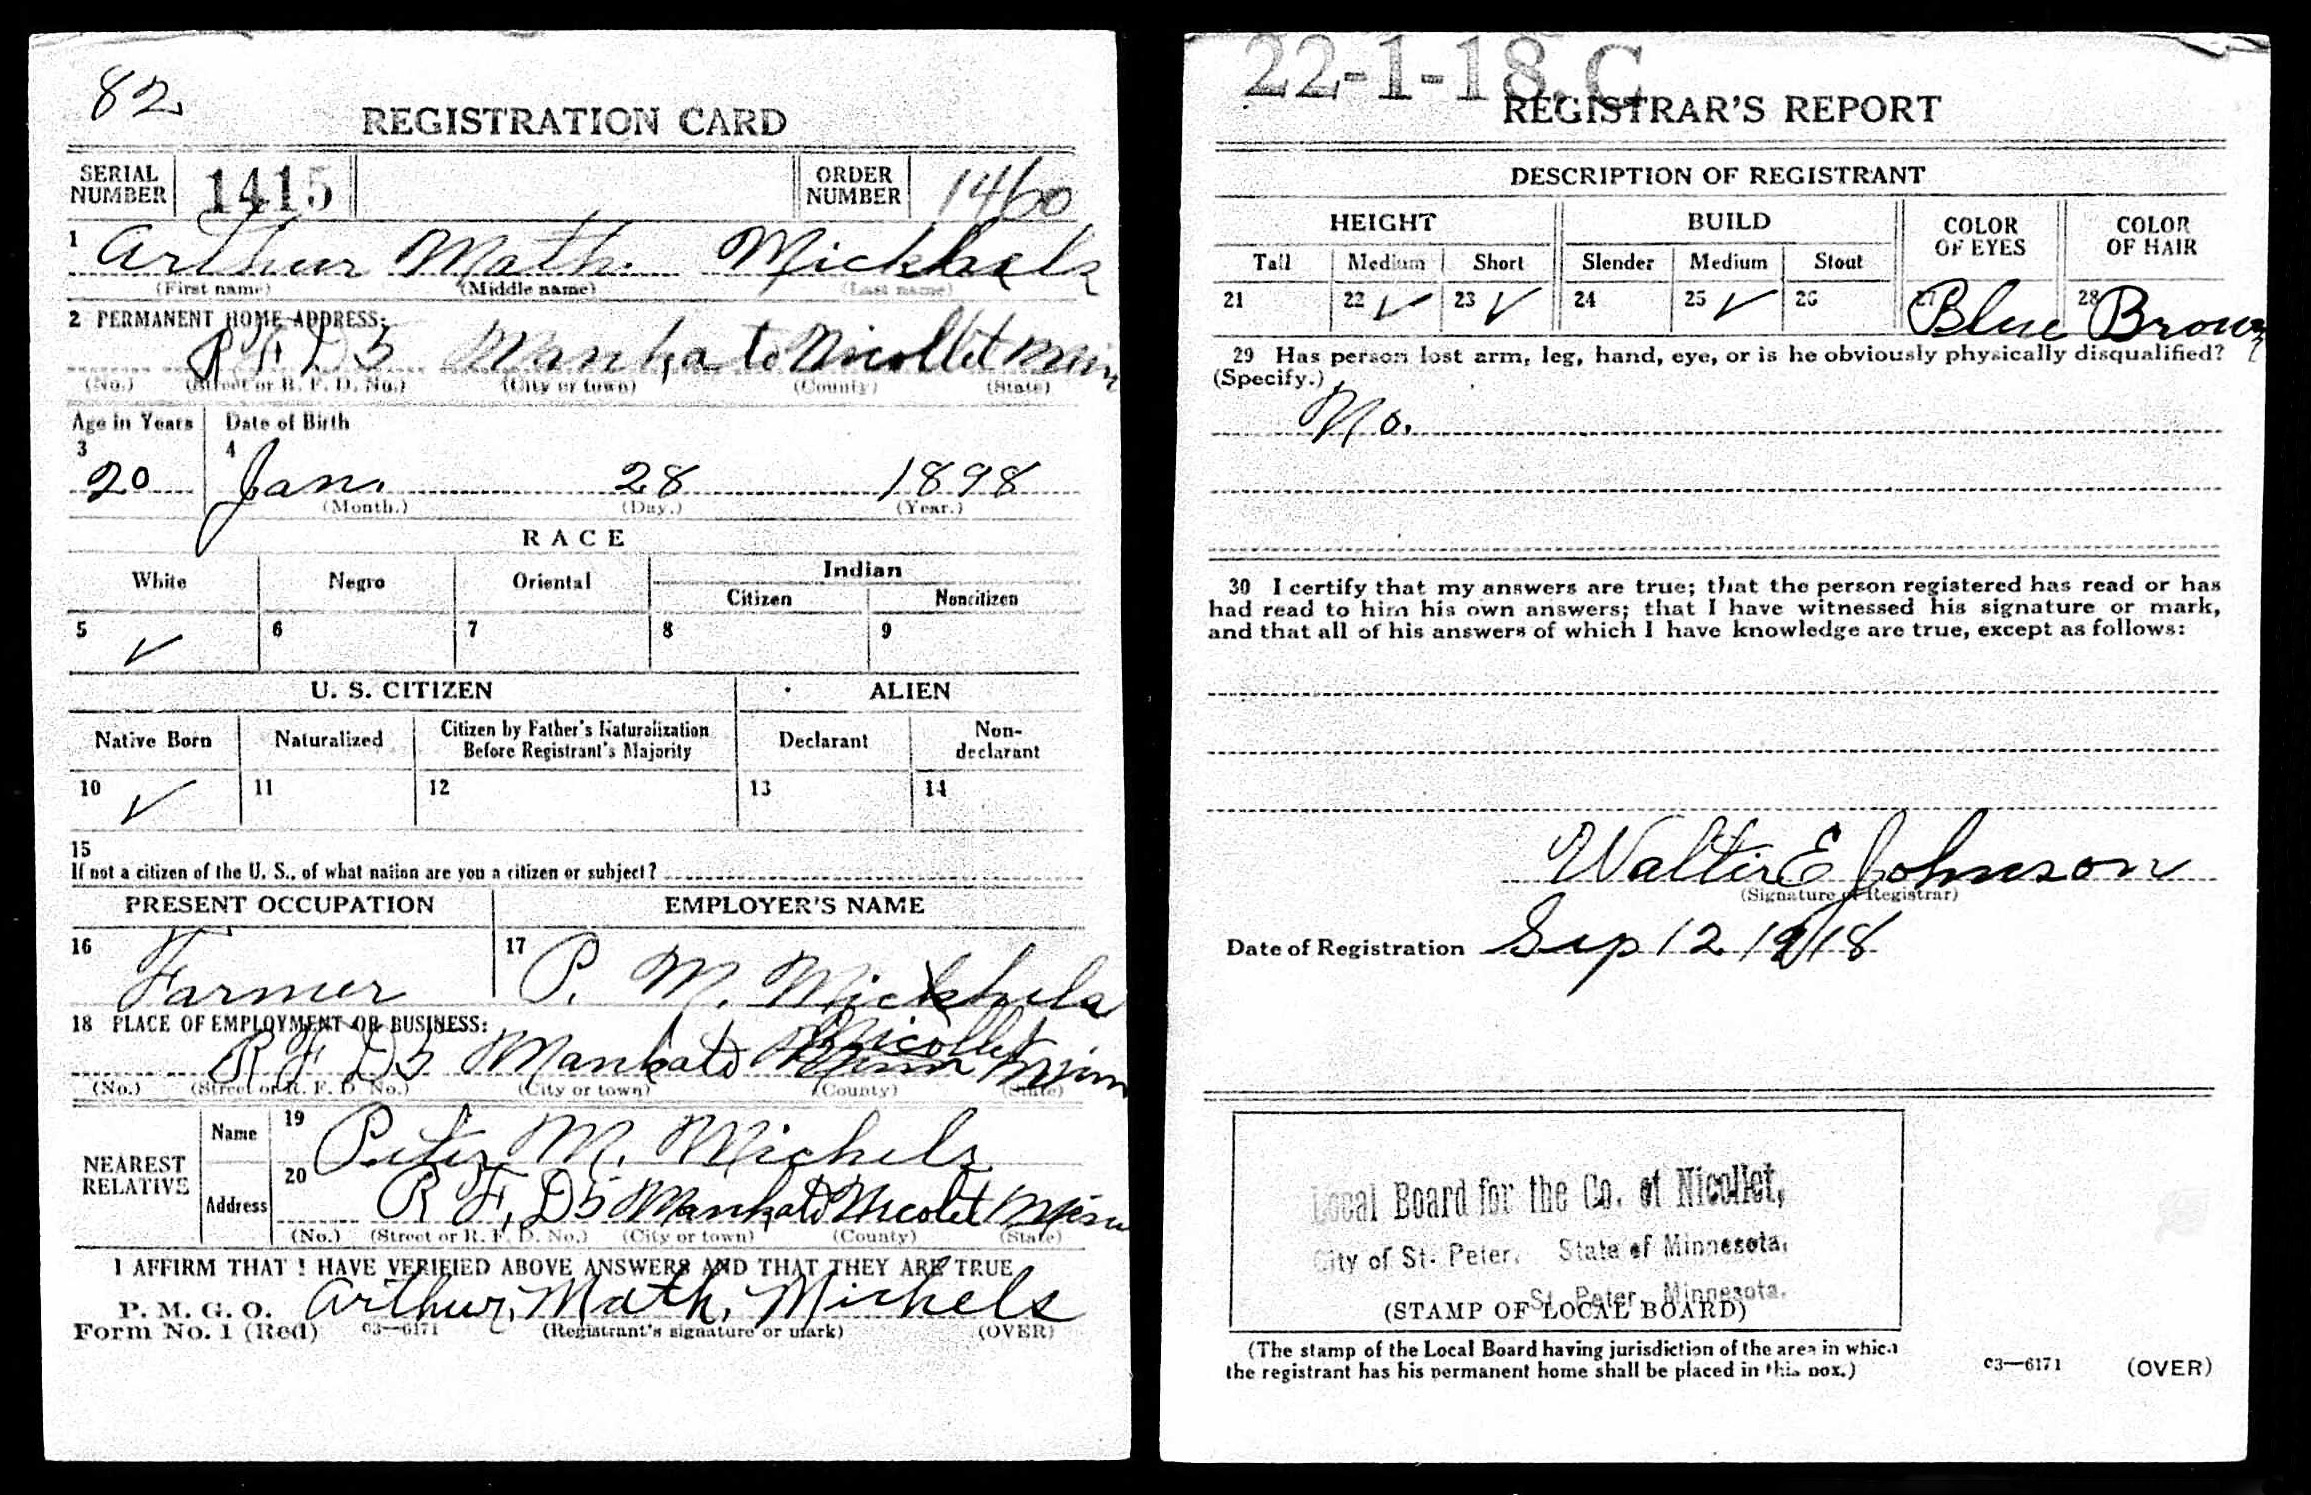 82
REGISTRATION CARD
SERIAL NUMBER 1415 ORDER NUMBER 1460
1 Arthur Math. Mickhels
(First name) (Middle name) (Last name)
2 PERMANENT HOME ADDRESS:
R F D 5 Mankato Nicollet Minn
(No.) (Street or R. F. D. No.) (City or town) (County) (State)
Age in Years Date of Birth
3 20 4 Jan. 28 1898
(Month.) (Day.) (Year.)
RACE
White Negro Oriental Indian
Citizen Noncitizen
5 ✓ 6 7 8 9
U. S. CITIZEN ALIEN
Native Born Naturalized Citizen by Father's Naturalization Before Registrant's Majority Declarant Non-declarant
10 ✓ 11 12 13 14
15
If not a citizen of the U. S., of what nation are you a citizen or subject?
PRESENT OCCUPATION EMPLOYER'S NAME
16 Farmer 17 P. M. Mickhels
18 PLACE OF EMPLOYMENT OR BUSINESS:
R F D 5 Mankato Nicollet Minn
(No.) (Street or R. F. D. No.) (City or town) (County) (State)
NEAREST RELATIVE
Name 19 Peter M. Michels
Address 20 R F, D 5 Mankato Nicolet Minn
(No.) (Street or R. F. D. No.) (City or town) (County) (State)
I AFFIRM THAT I HAVE VERIFIED ABOVE ANSWERS AND THAT THEY ARE TRUE
P. M. G. O.
Form No. 1 (Red) 03—6171 Arthur, Math, Michels
(Registrant's signature or mark) (OVER)
22-1-18. C
REGISTRAR'S REPORT
DESCRIPTION OF REGISTRANT
HEIGHT BUILD COLOR OF EYES COLOR OF HAIR
Tall Medium Short Slender Medium Stout
21 22 ✓ 23 ✓ 24 25 ✓ 26 27 Blue 28 Brown
29 Has person lost arm, leg, hand, eye, or is he obviously physically disqualified?
(Specify.)
No.
30 I certify that my answers are true; that the person registered has read or has
had read to him his own answers; that I have witnessed his signature or mark,
and that all of his answers of which I have knowledge are true, except as follows:
Walter E Johnson
(Signature of Registrar)
Date of Registration Sep 12 1918
Local Board for the Co. of Nicollet,
City of St. Peter. State of Minnesota.
St. Peter, Minnesota.
(STAMP OF LOCAL BOARD)
(The stamp of the Local Board having jurisdiction of the area in which
the registrant has his permanent home shall be placed in this box.)
03—6171 (OVER)